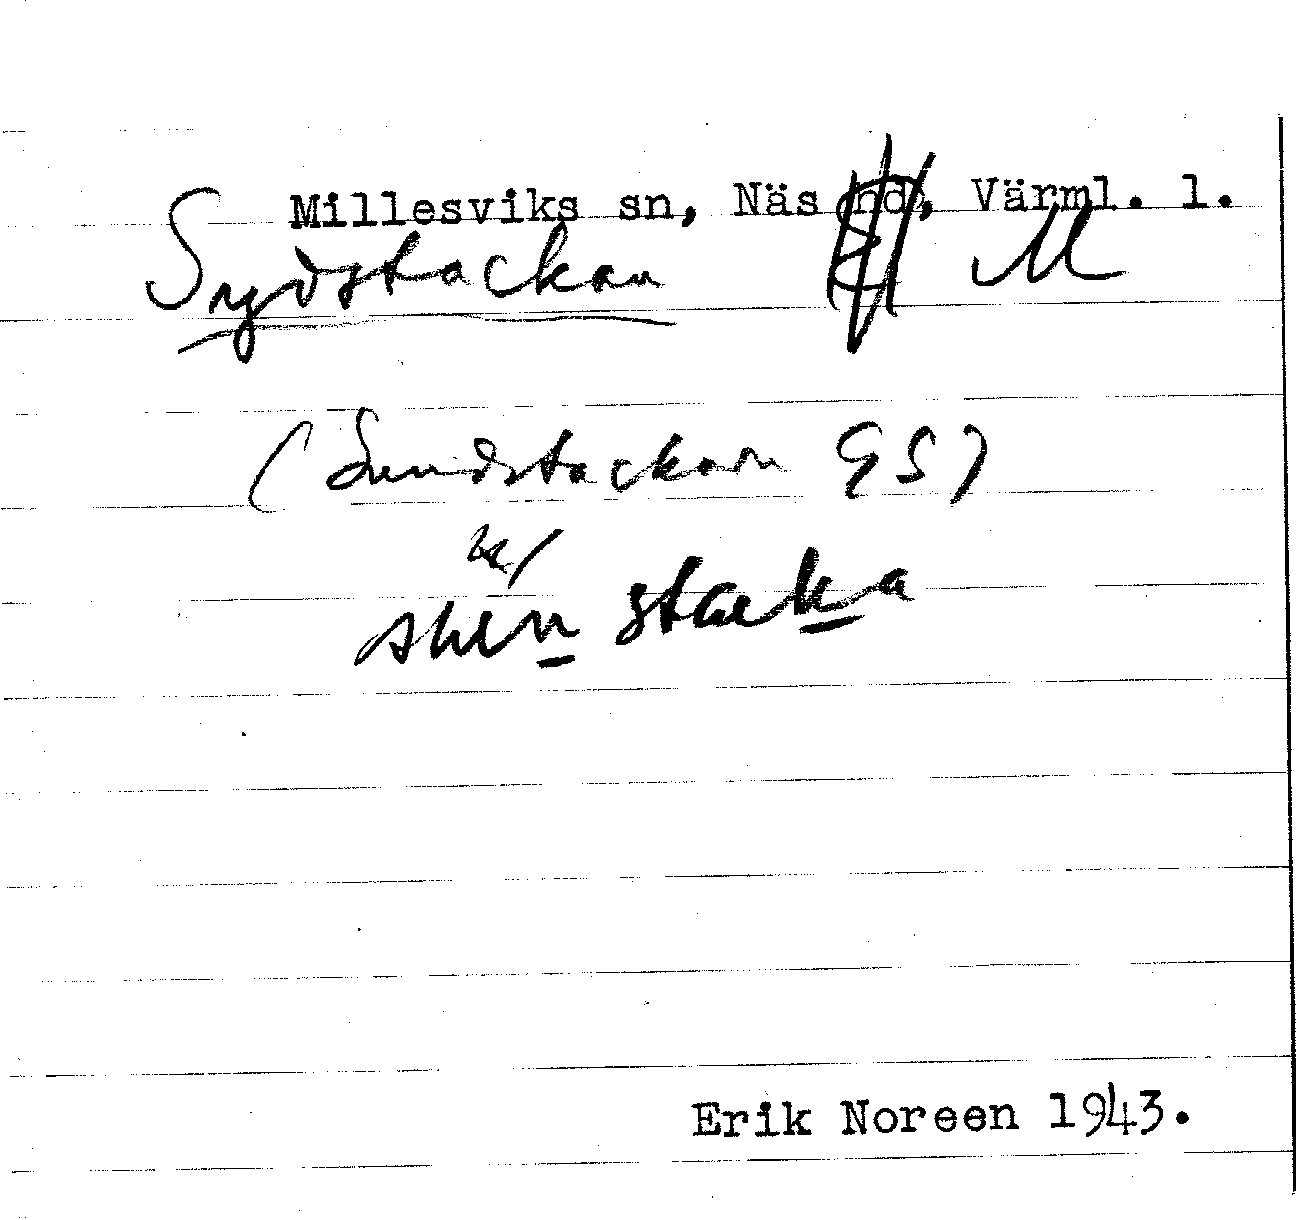 Millesviks sn, Näs hd, Värml. l.
Snydstackan M
(Sundstackan GS)
stacka
Erik Noreen 1943.